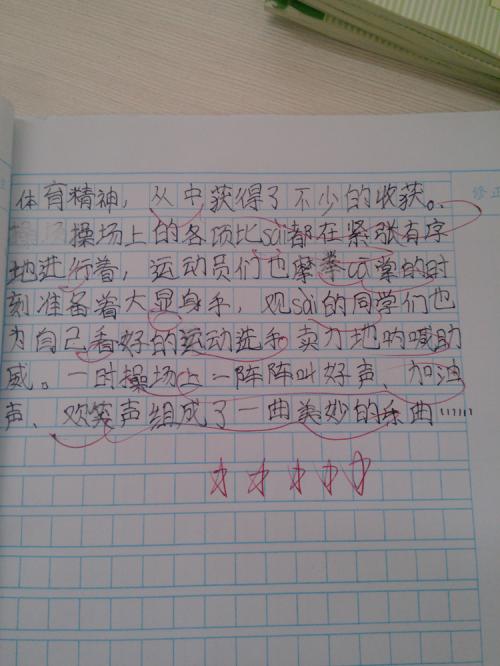 体育精神，从中获得了不少的收获。
操场上的各项比sài都在紧张有序
地进行着，运动员们也摩拳cā掌的时
刻准备着大显身手，观sài的同学们也
为自己看好的运动选手卖力地呐喊助
威。一时操场上一阵阵叫好声、加油
声、欢笑声组成了一曲美妙的乐曲……
修正